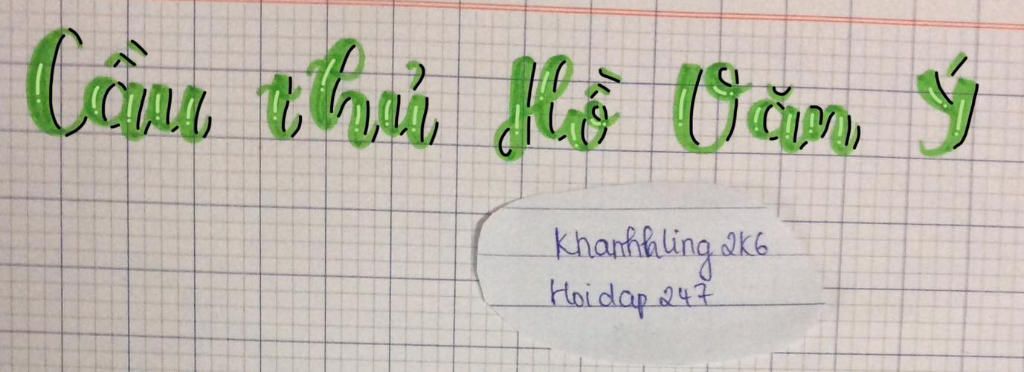 Cầu thủ Hồ Văn Ý
Khanhhling 2K6
Hoidap 247